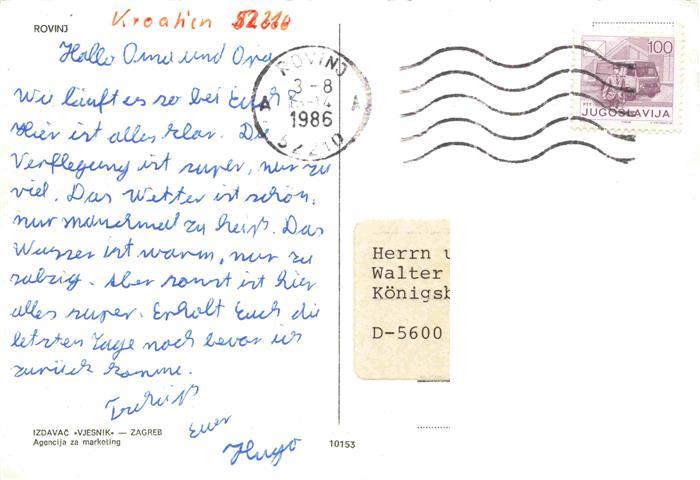 ROVINJ
Kroatien 52210
Hallo Oma und Opa
Wie läuft es so bei Euch?
Hier ist alles klar. Die
Verflegung ist super, nur zu
viel. Das Wetter ist schön,
nur manchmal zu heiß. Das
Wasser ist warm, nur zu
salzig. Aber sonst ist hier
alles super. Erholt Euch die
letzten Tage noch bevor ich
zurück komme.
Euer
Hugo
IZDAVAČ «VJESNIK» — ZAGREB
Agencija za marketing
10153
ROVINJ
3-8
A A
1986
52210
100
PTT
JUGOSLAVIJA
Herrn u
Walter
Königsb
D-5600